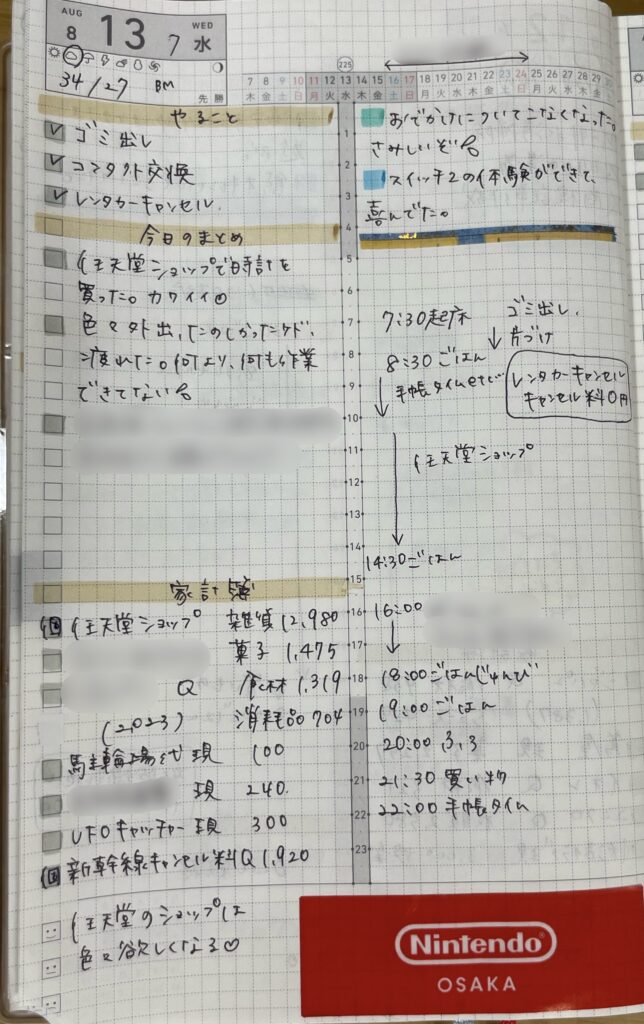 AUG
8 13 7 WED
水
34/27 BM
先勝
225
7 8 9 10 11 12 13 14 15 16 17 18 19 20 21 22 23 24 25 26 27 28 29
木 金 土 日 月 火 水 木 金 土 日 月 火 水 木 金 土 日 月 火 水 木 金
やること
ゴミ出し
コンタクト交換
レンタカーキャンセル.
今日のまとめ
任天堂ショップで時計を
買った。カワイイ
色々外出,たのしかったケド、
疲れた。何より、何も作業
できてない
家計簿
任天堂ショップ 雑貨 12,980
菓子 1,475
Q 食材 1,319
(2,023) 消耗品 704
駐輪場代 現 100
現 240.
UFOキャッチャー 現 300
新幹線キャンセル料 Q 1,920
任天堂のショップは
色々欲しくなる♡
1
2
3
4
5
6
7
8
9
10
11
12
13
14
15
16
17
18
19
20
21
22
23
おでかけについてこなくなった。
さみしいぞ
スイッチ2の体験ができて、
喜んでた。
7:30起床 ゴミ出し、
片づけ
8:30 ごはん
手帳タイムetc…
レンタカーキャンセル
キャンセル料0円
任天堂ショップ
14:30ごはん
16:00
18:00ごはんじゅんび
19:00ごはん
20:00 ふろ
21:30 買い物
22:00 手帳タイム
Nintendo
OSAKA